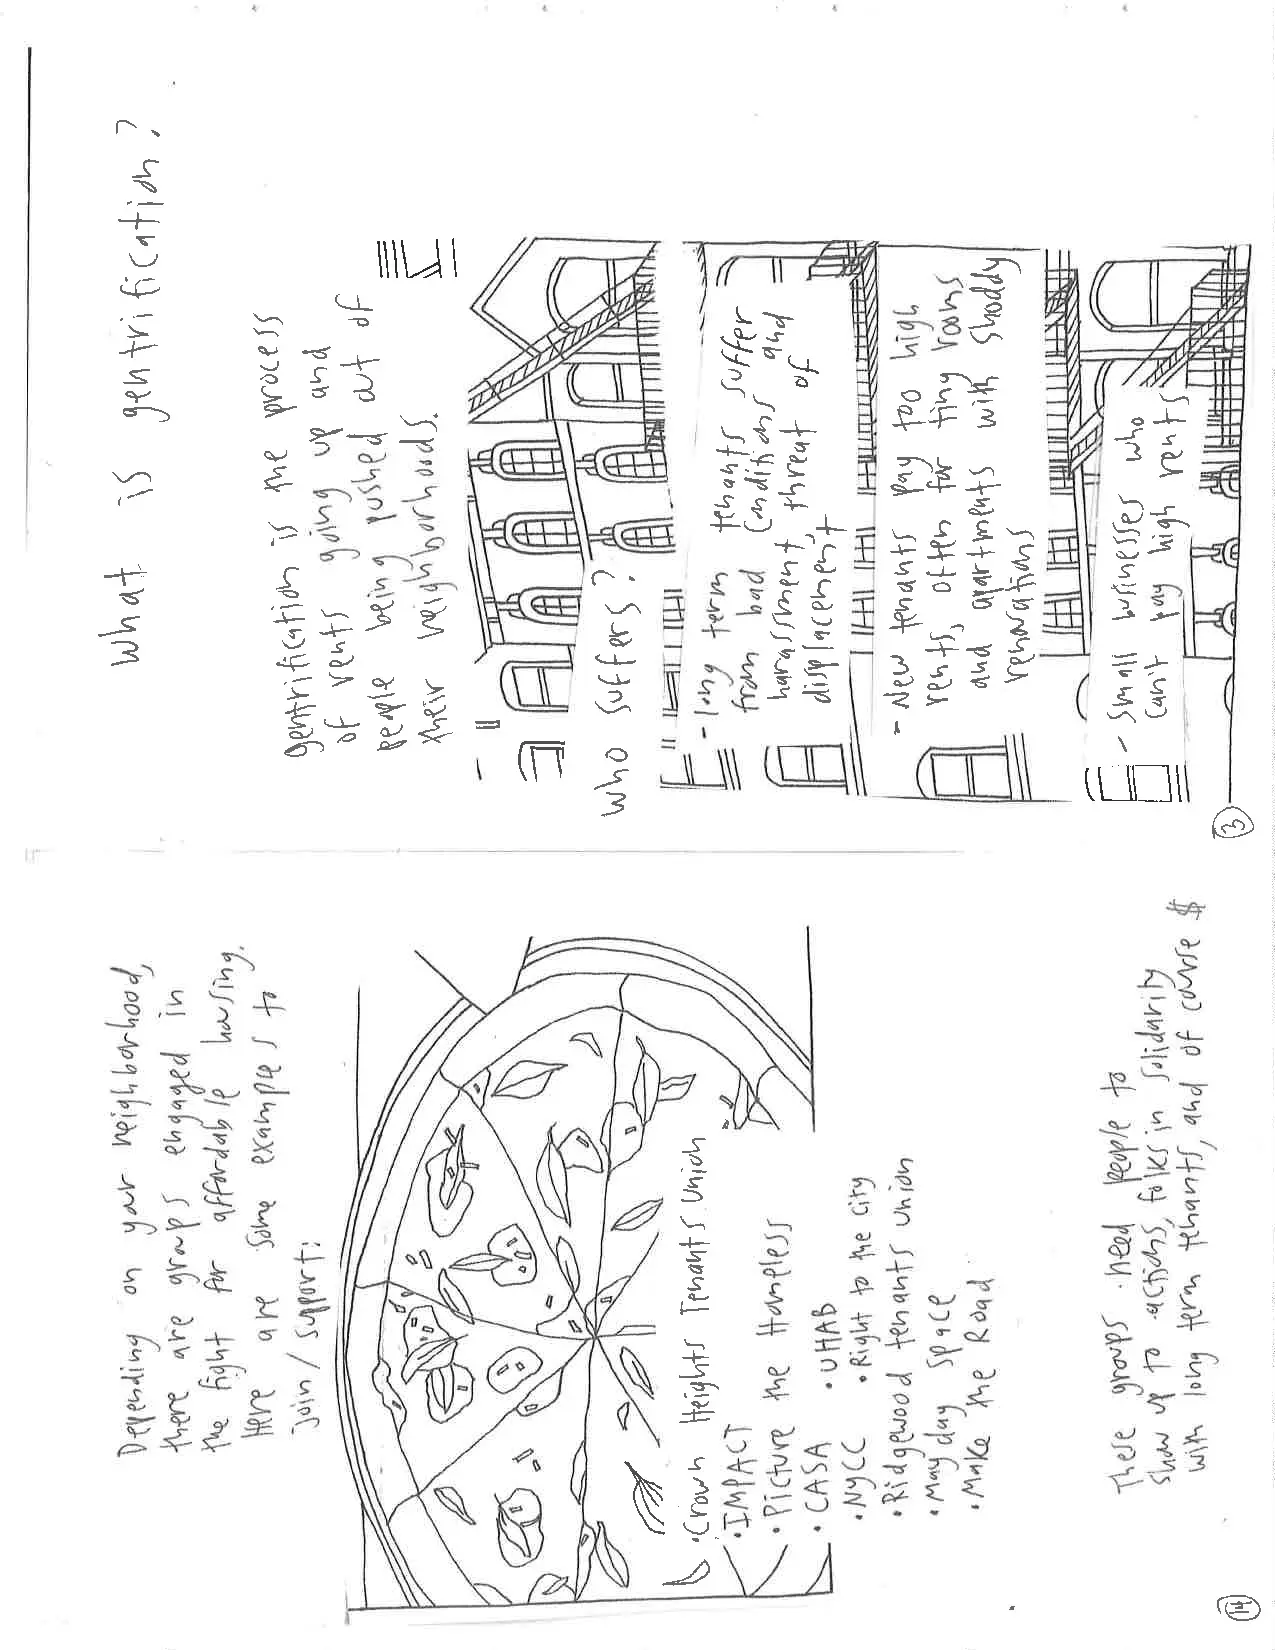 Depending on your neighborhood,
there are groups engaged in
the fight for affordable housing.
Here are some examples to
join/support:
• Crown Heights Tenants Union
• IMPACT
• Picture the Homeless
• CASA • UHAB
• NYCC • Right to the City
• Ridgewood tenants union
• May day space
• Make the Road
These groups need people to
show up to actions, folks in solidarity
with long term tenants, and of course $
14
What is gentrification?
gentrification is the process
of rents going up and
people being pushed out of
their neighborhoods.
Who suffers?
- long term tenants suffer
from bad conditions and
harassment, threat of
displacement
- New tenants pay too high
rents, often for tiny rooms
and apartments with shoddy
renovations
- Small businesses who
can't pay high rents
3